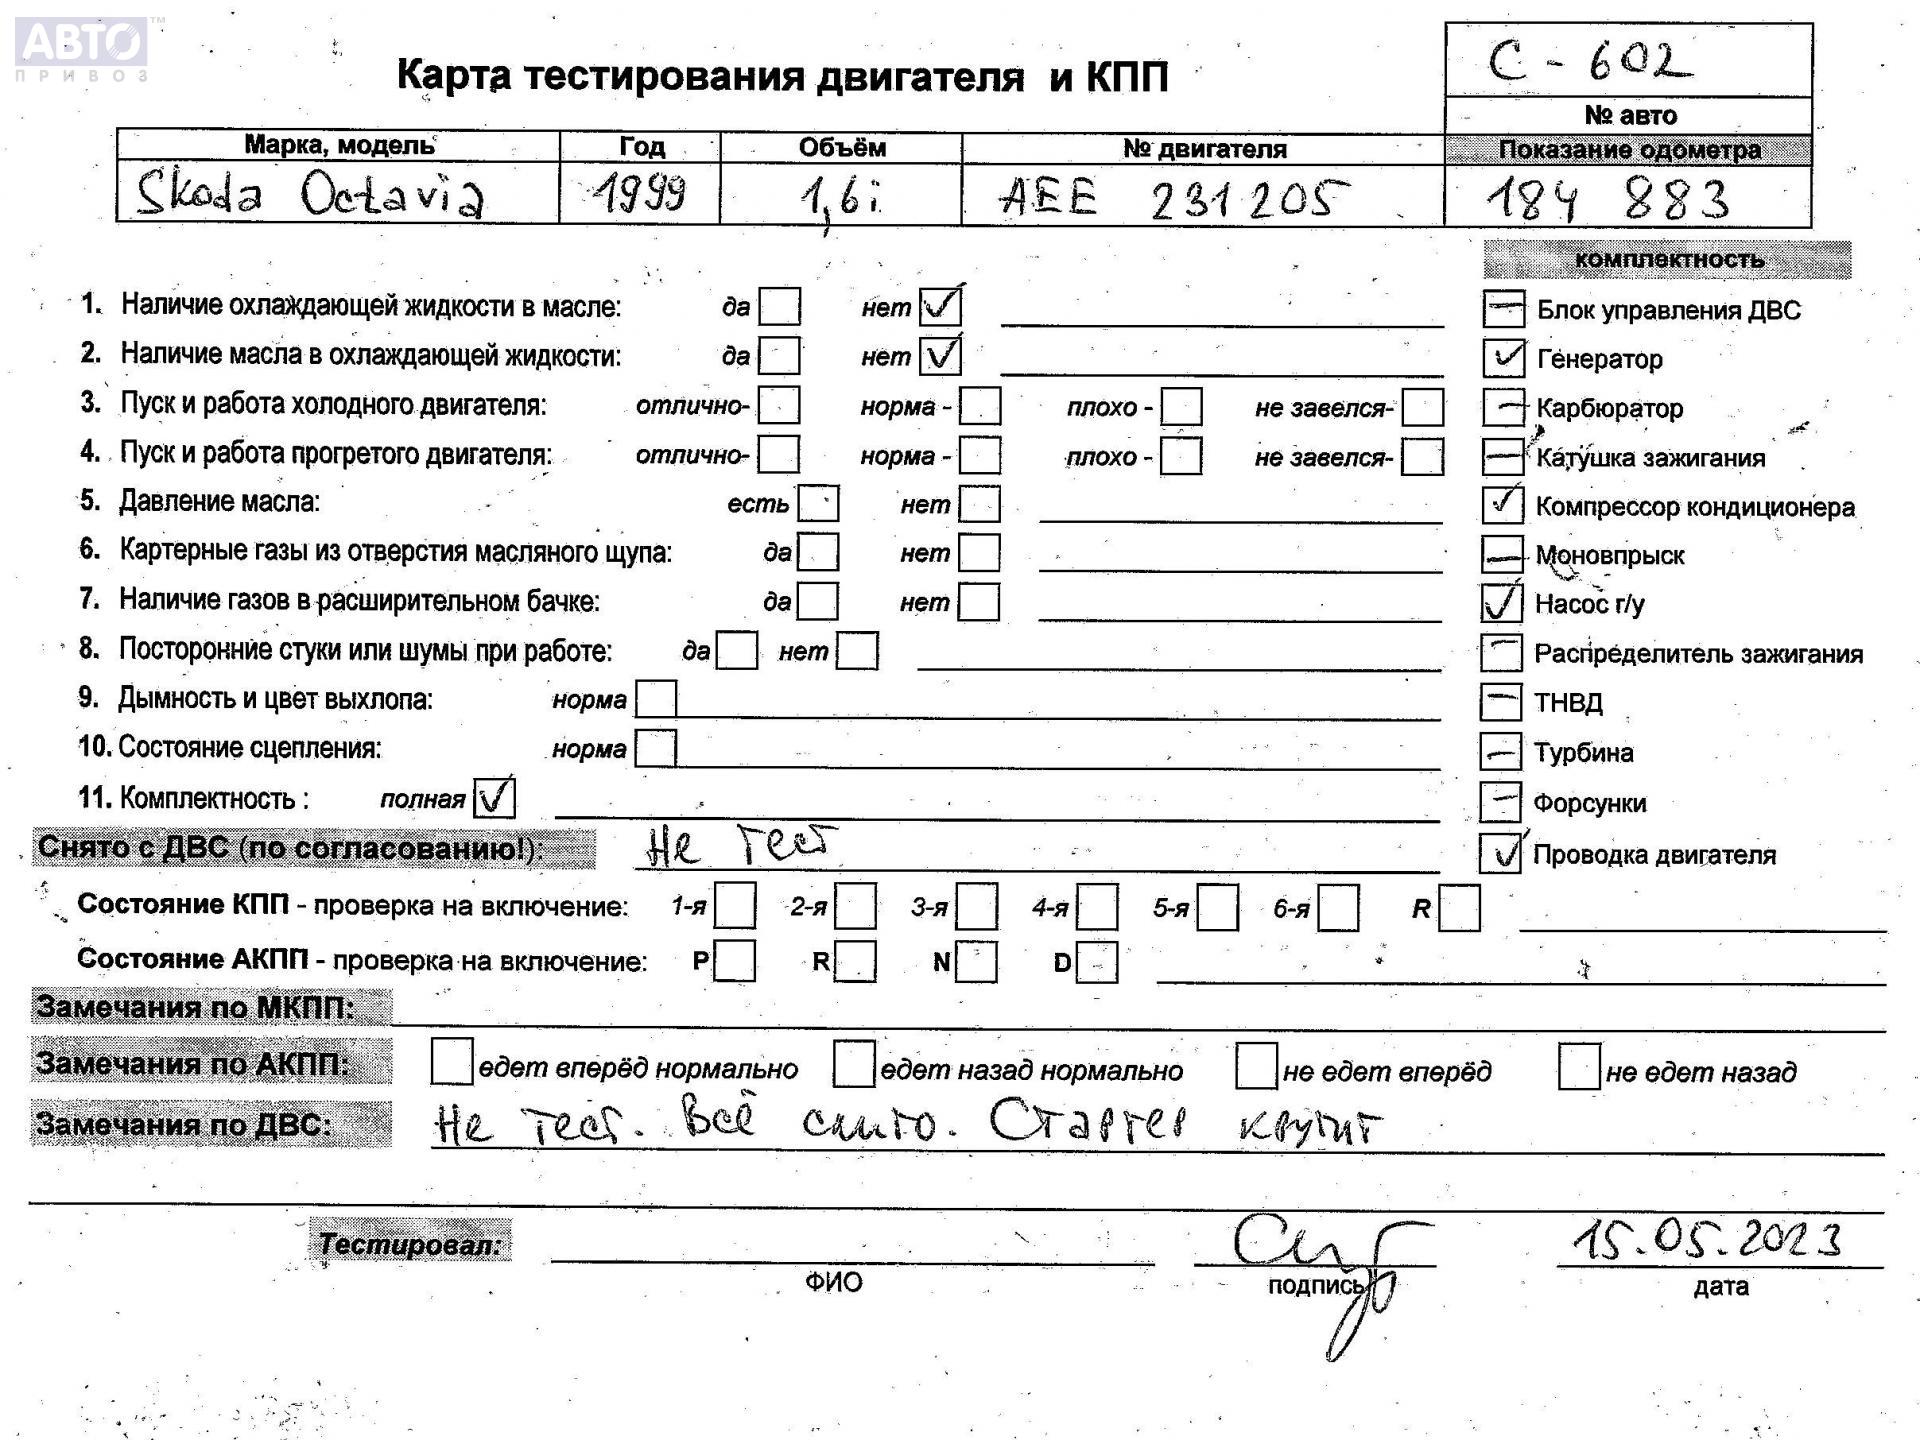 АВТО™
ПРИВОЗ
С - 602
Карта тестирования двигателя и КПП
№ авто
Марка, модель Год Объём № двигателя Показание одометра
Skoda Octavia 1999 1,6i AEE 231205 184 883
комплектность
1. Наличие охлаждающей жидкости в масле: да нет ✓
Блок управления ДВС
2. Наличие масла в охлаждающей жидкости: да нет ✓
✓ Генератор
3. Пуск и работа холодного двигателя: отлично- норма - плохо - не завелся-
Карбюратор
4. Пуск и работа прогретого двигателя: отлично- норма - плохо - не завелся-
Катушка зажигания
5. Давление масла: есть нет
✓ Компрессор кондиционера
6. Картерные газы из отверстия масляного щупа: да нет
Моновпрыск
7. Наличие газов в расширительном бачке: да нет
✓ Насос г/у
8. Посторонние стуки или шумы при работе: да нет
Распределитель зажигания
9. Дымность и цвет выхлопа: норма
ТНВД
10. Состояние сцепления: норма
Турбина
11. Комплектность : полная ✓
Форсунки
Снято с ДВС (по согласованию!): Не тест
✓ Проводка двигателя
Состояние КПП - проверка на включение: 1-я 2-я 3-я 4-я 5-я 6-я R
Состояние АКПП - проверка на включение: P R N D
Замечания по МКПП:
Замечания по АКПП: едет вперёд нормально едет назад нормально не едет вперёд не едет назад
Замечания по ДВС: Не тест. Всё снято. Стартер крутит
Тестировал: 15.05.2023
ФИО подпись дата